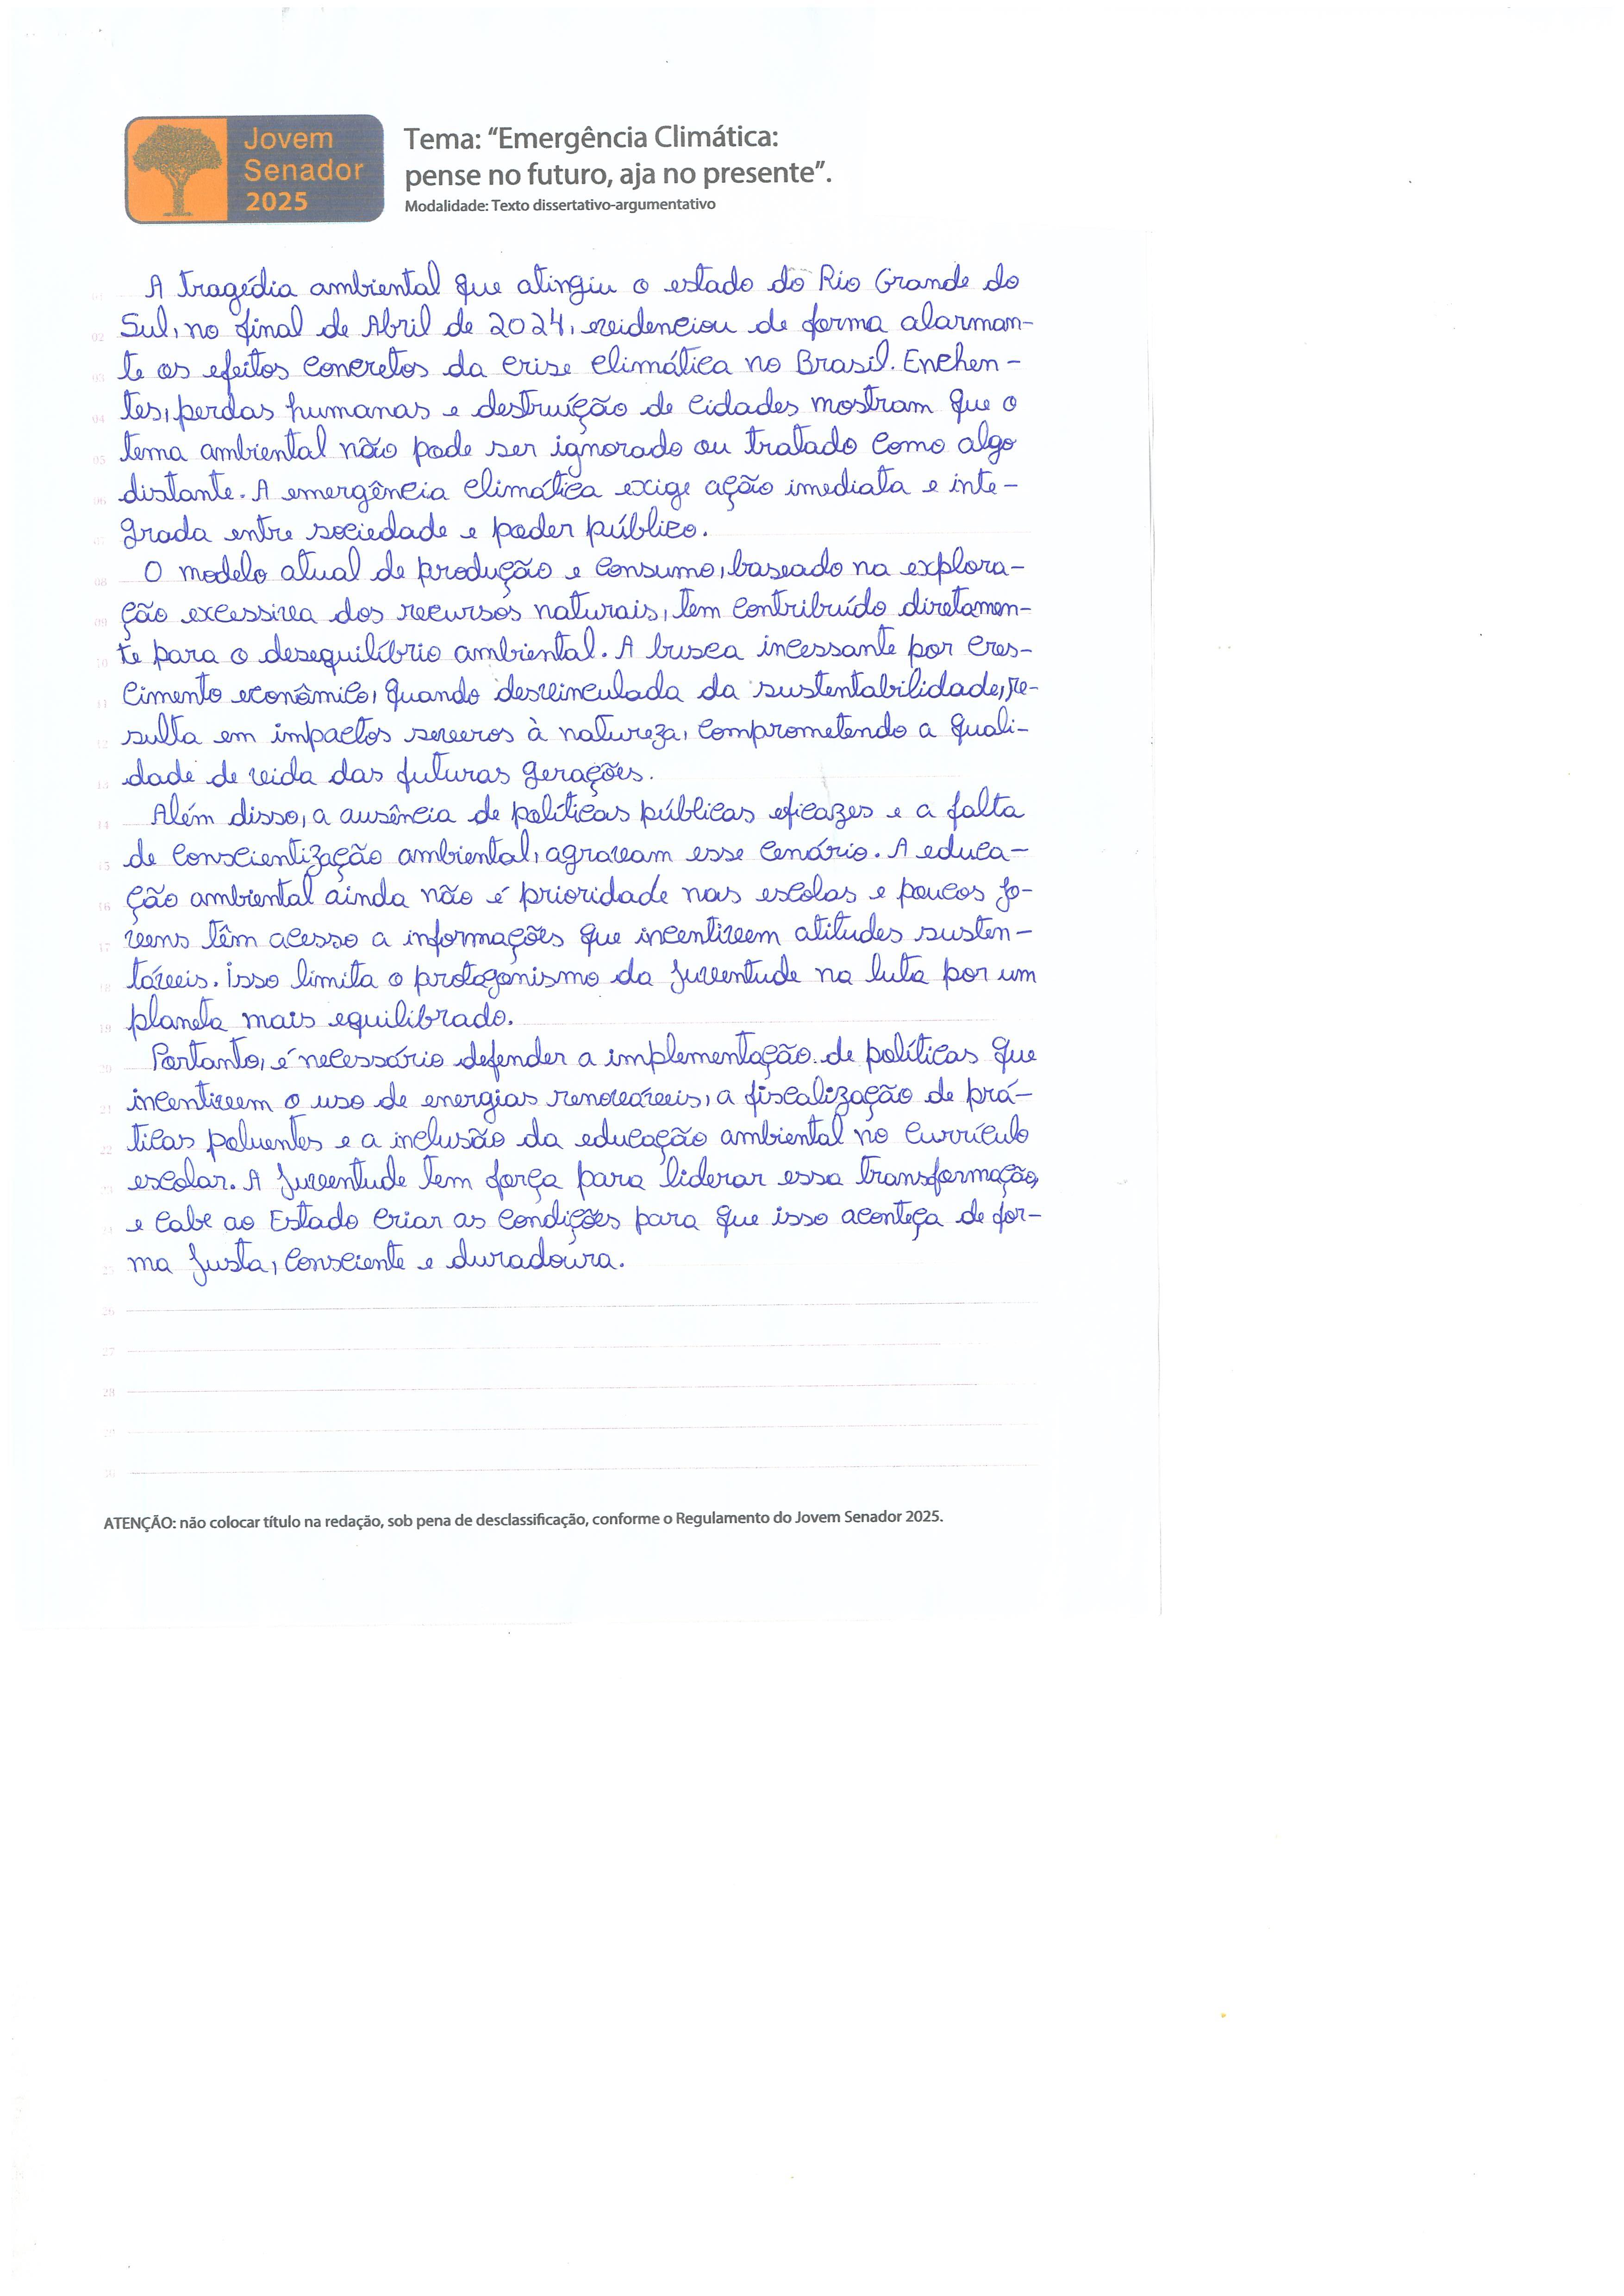 Jovem
Senador
2025
Tema: “Emergência Climática:
pense no futuro, aja no presente”.
Modalidade: Texto dissertativo-argumentativo
A tragédia ambiental que atingiu o estado do Rio Grande do
02 Sul, no final de Abril de 2024, evidenciou de forma alarman-
03 te os efeitos concretos da crise climática no Brasil. Enchen-
04 tes, perdas humanas e destruição de cidades mostram que o
05 tema ambiental não pode ser ignorado ou tratado como algo
06 distante. A emergência climática exige ação imediata e inte-
grada entre sociedade e poder público.
08 O modelo atual de produção e consumo, baseado na explora-
09 ção excessiva dos recursos naturais, tem contribuído diretamen-
10 te para o desequilíbrio ambiental. A busca incessante por cres-
11 cimento econômico, quando desvinculada da sustentabilidade, re-
12 sulta em impactos severos à natureza, comprometendo a quali-
13 dade de vida das futuras gerações.
14 Além disso, a ausência de políticas públicas eficazes e a falta
15 de conscientização ambiental, agravam esse cenário. A educa-
16 ção ambiental ainda não é prioridade nas escolas e poucos jo-
17 vens têm acesso a informações que incentivem atitudes susten-
18 táveis. Isso limita o protagonismo da juventude na luta por um
19 planeta mais equilibrado.
20 Portanto, é necessário defender a implementação de políticas que
21 incentivem o uso de energias renováveis, a fiscalização de prá-
22 ticas poluentes e a inclusão da educação ambiental no currículo
escolar. A juventude tem força para liderar essa transformação,
e cabe ao Estado criar as condições para que isso aconteça de for-
25 ma justa, consciente e duradoura.
26
27
28
29
30
ATENÇÃO: não colocar título na redação, sob pena de desclassificação, conforme o Regulamento do Jovem Senador 2025.